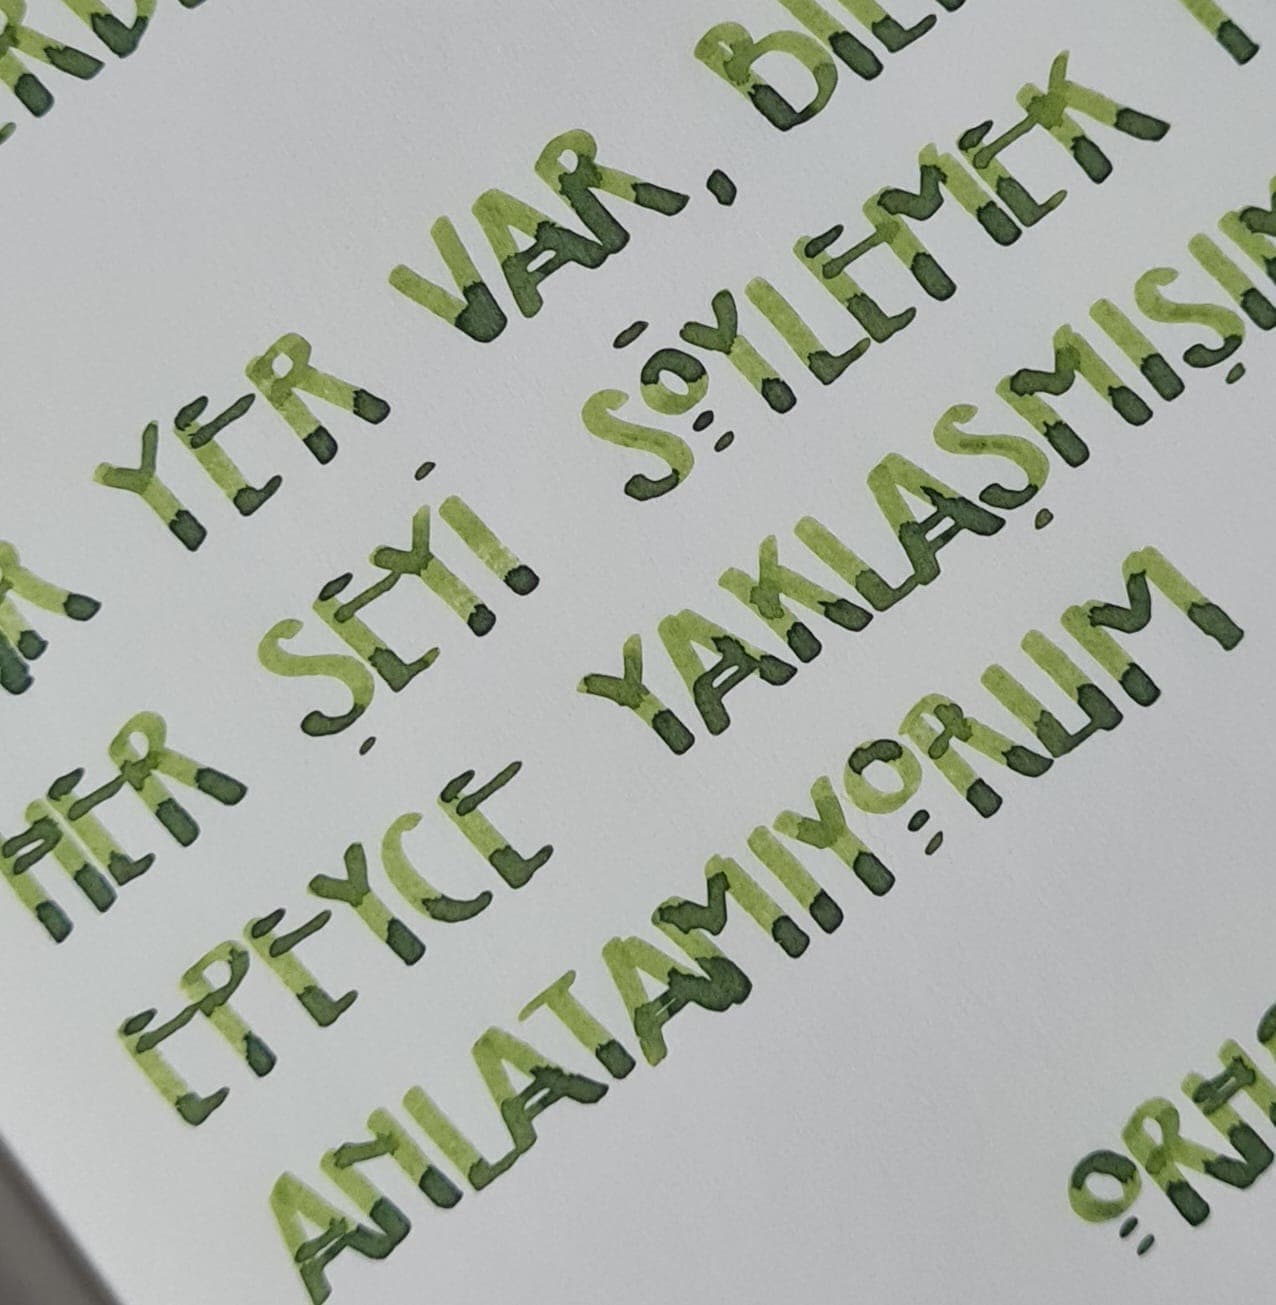 YER VAR,
HER ŞEYİ SÖYLEMEK
EPEYCE YAKLAŞMIŞIM
ANLATAMIYORUM